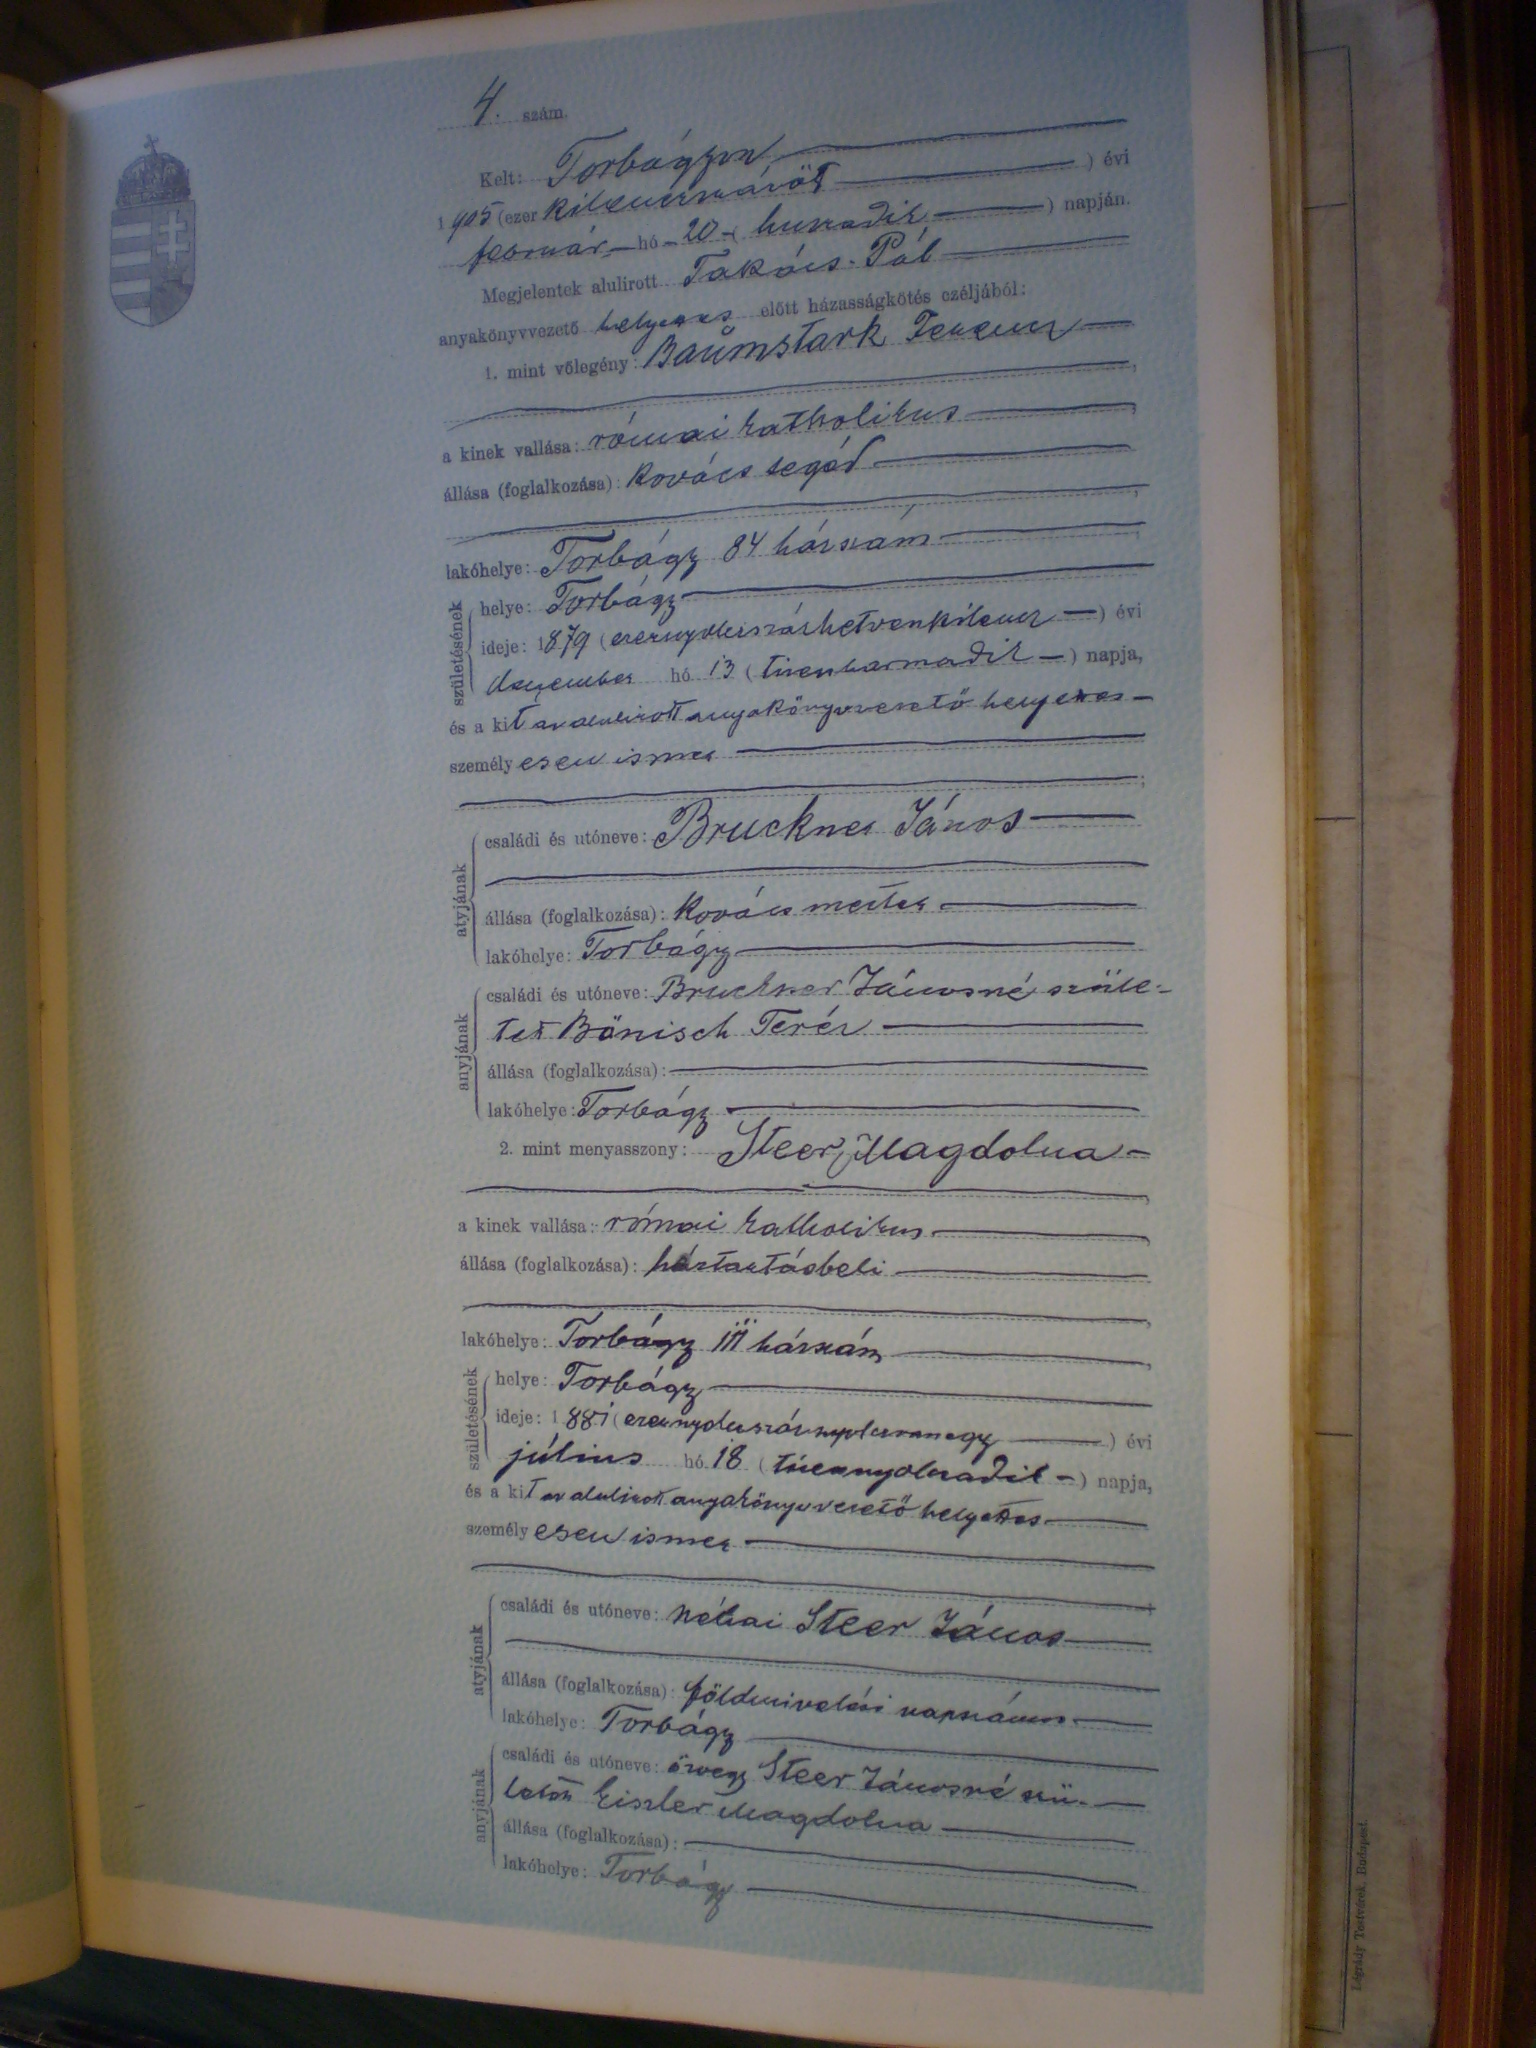 4. szám.
Kelt: Torbágyon
1905 (ezerkilenczszázöt) évi
február hó 20 (huszadik) napján.
Megjelentek alulirott Takács Pál
anyakönyvvezető helyettes előtt házasságkötés czéljából:
1. mint vőlegény: Baumstark Ferencz
a kinek vallása: római katholikus
állása (foglalkozása): kovács segéd
lakóhelye: Torbágy 84 házszám
születésének
helye: Torbágy
ideje: 1879 (ezernyolczszázhetvenkilencz) évi
deczember hó 13 (tizenharmadik) napja,
és a kit az alulirott anyakönyvvezető helyettes
személyesen ismer
atyjának
családi és utóneve: Bruckner János
állása (foglalkozása): kovács mester
lakóhelye: Torbágy
anyjának
családi és utóneve: Bruckner Jánosné szüle-
tett Bönisch Teréz
állása (foglalkozása):
lakóhelye: Torbágy
2. mint menyasszony: Steer Magdolna
a kinek vallása: római katholikus
állása (foglalkozása): háztartásbeli
lakóhelye: Torbágy 111 házszám
születésének
helye: Torbágy
ideje: 1881 (ezernyolczszáznyolczvanegy) évi
július hó 18 (tizennyolczadik) napja,
és a kit az alulirott anyakönyvvezető helyettes
személyesen ismer
atyjának
családi és utóneve: néhai Steer János
állása (foglalkozása): földmivelési napszámos
lakóhelye: Torbágy
anyjának
családi és utóneve: özvegy Steer Jánosné szü-
letett Eiszler Magdolna
állása (foglalkozása):
lakóhelye: Torbágy
Légrády Testvérek, Budapest.